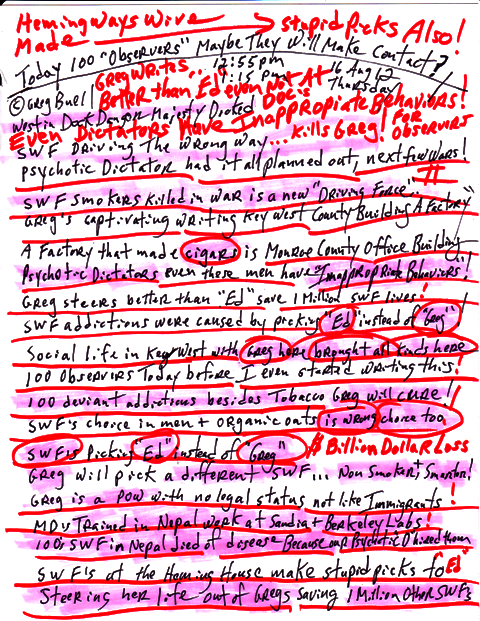 Hemingways Wive → Stupid Picks Also!
Made
Today 100 "Observers" Maybe They Will Make Contact?
Greg Writes... 12:55pm
16 Aug 12
Thursday
© Greg Buell Better than Ed even Not At Doc's
West in Dock Dragon Majesty Docked Inappropiate Behaviors!
Even Dictators Have Inappropiate Behaviors! For Observers
SWF Driving The wrong way... Kills Greg!
psychotic Dictator had it all planned out, next few wars!
SWF smokers killed in war is a new "Driving Force"..
Greg's captivating writing Key West County Building A Factory"
A Factory that made cigars is Monroe County Office Building
Psychotic Dictators even these men have "Inappropriate Behaviors!
Greg steers better than "Ed" save 1 Million SWF lives!
SWF addictions were caused by picking "Ed" instead of "Greg"
Social life in Key West with Greg here brought all kinds here
100 Observers Today before I even started writing this!
100 deviant addictions besides Tobacco Greg will cure!
SWF's choice in men + organic oats is wrong choice too
SWF's Picking "Ed" instead of "Greg" $ Billion Dollar Loss
Greg will pick a different SWF... Non Smoker, + Smarter!
Greg is a POW with no legal status not like Immigrants!
MD's Trained in Nepal work at Sandia + Berkeley Labs!
100's SWF in Nepal died of disease Because our Psychotic D hired them
SWF's at the Heming House make stupid picks to Ed
Steering her life out of Gregs Saving 1 Million other SWF's